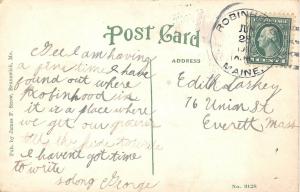 Post Card
ROBINHOOD
MAINE.
ADDRESS
Pub. by James F. Snow, Brunswick, Me.
Gee I am having
a fine time I have
found out where
Robinhood is
it is a place where
we get our
I havent got time
to write
so long George
Edith Laskey
76 Union St
Everett Mass
No. 3128